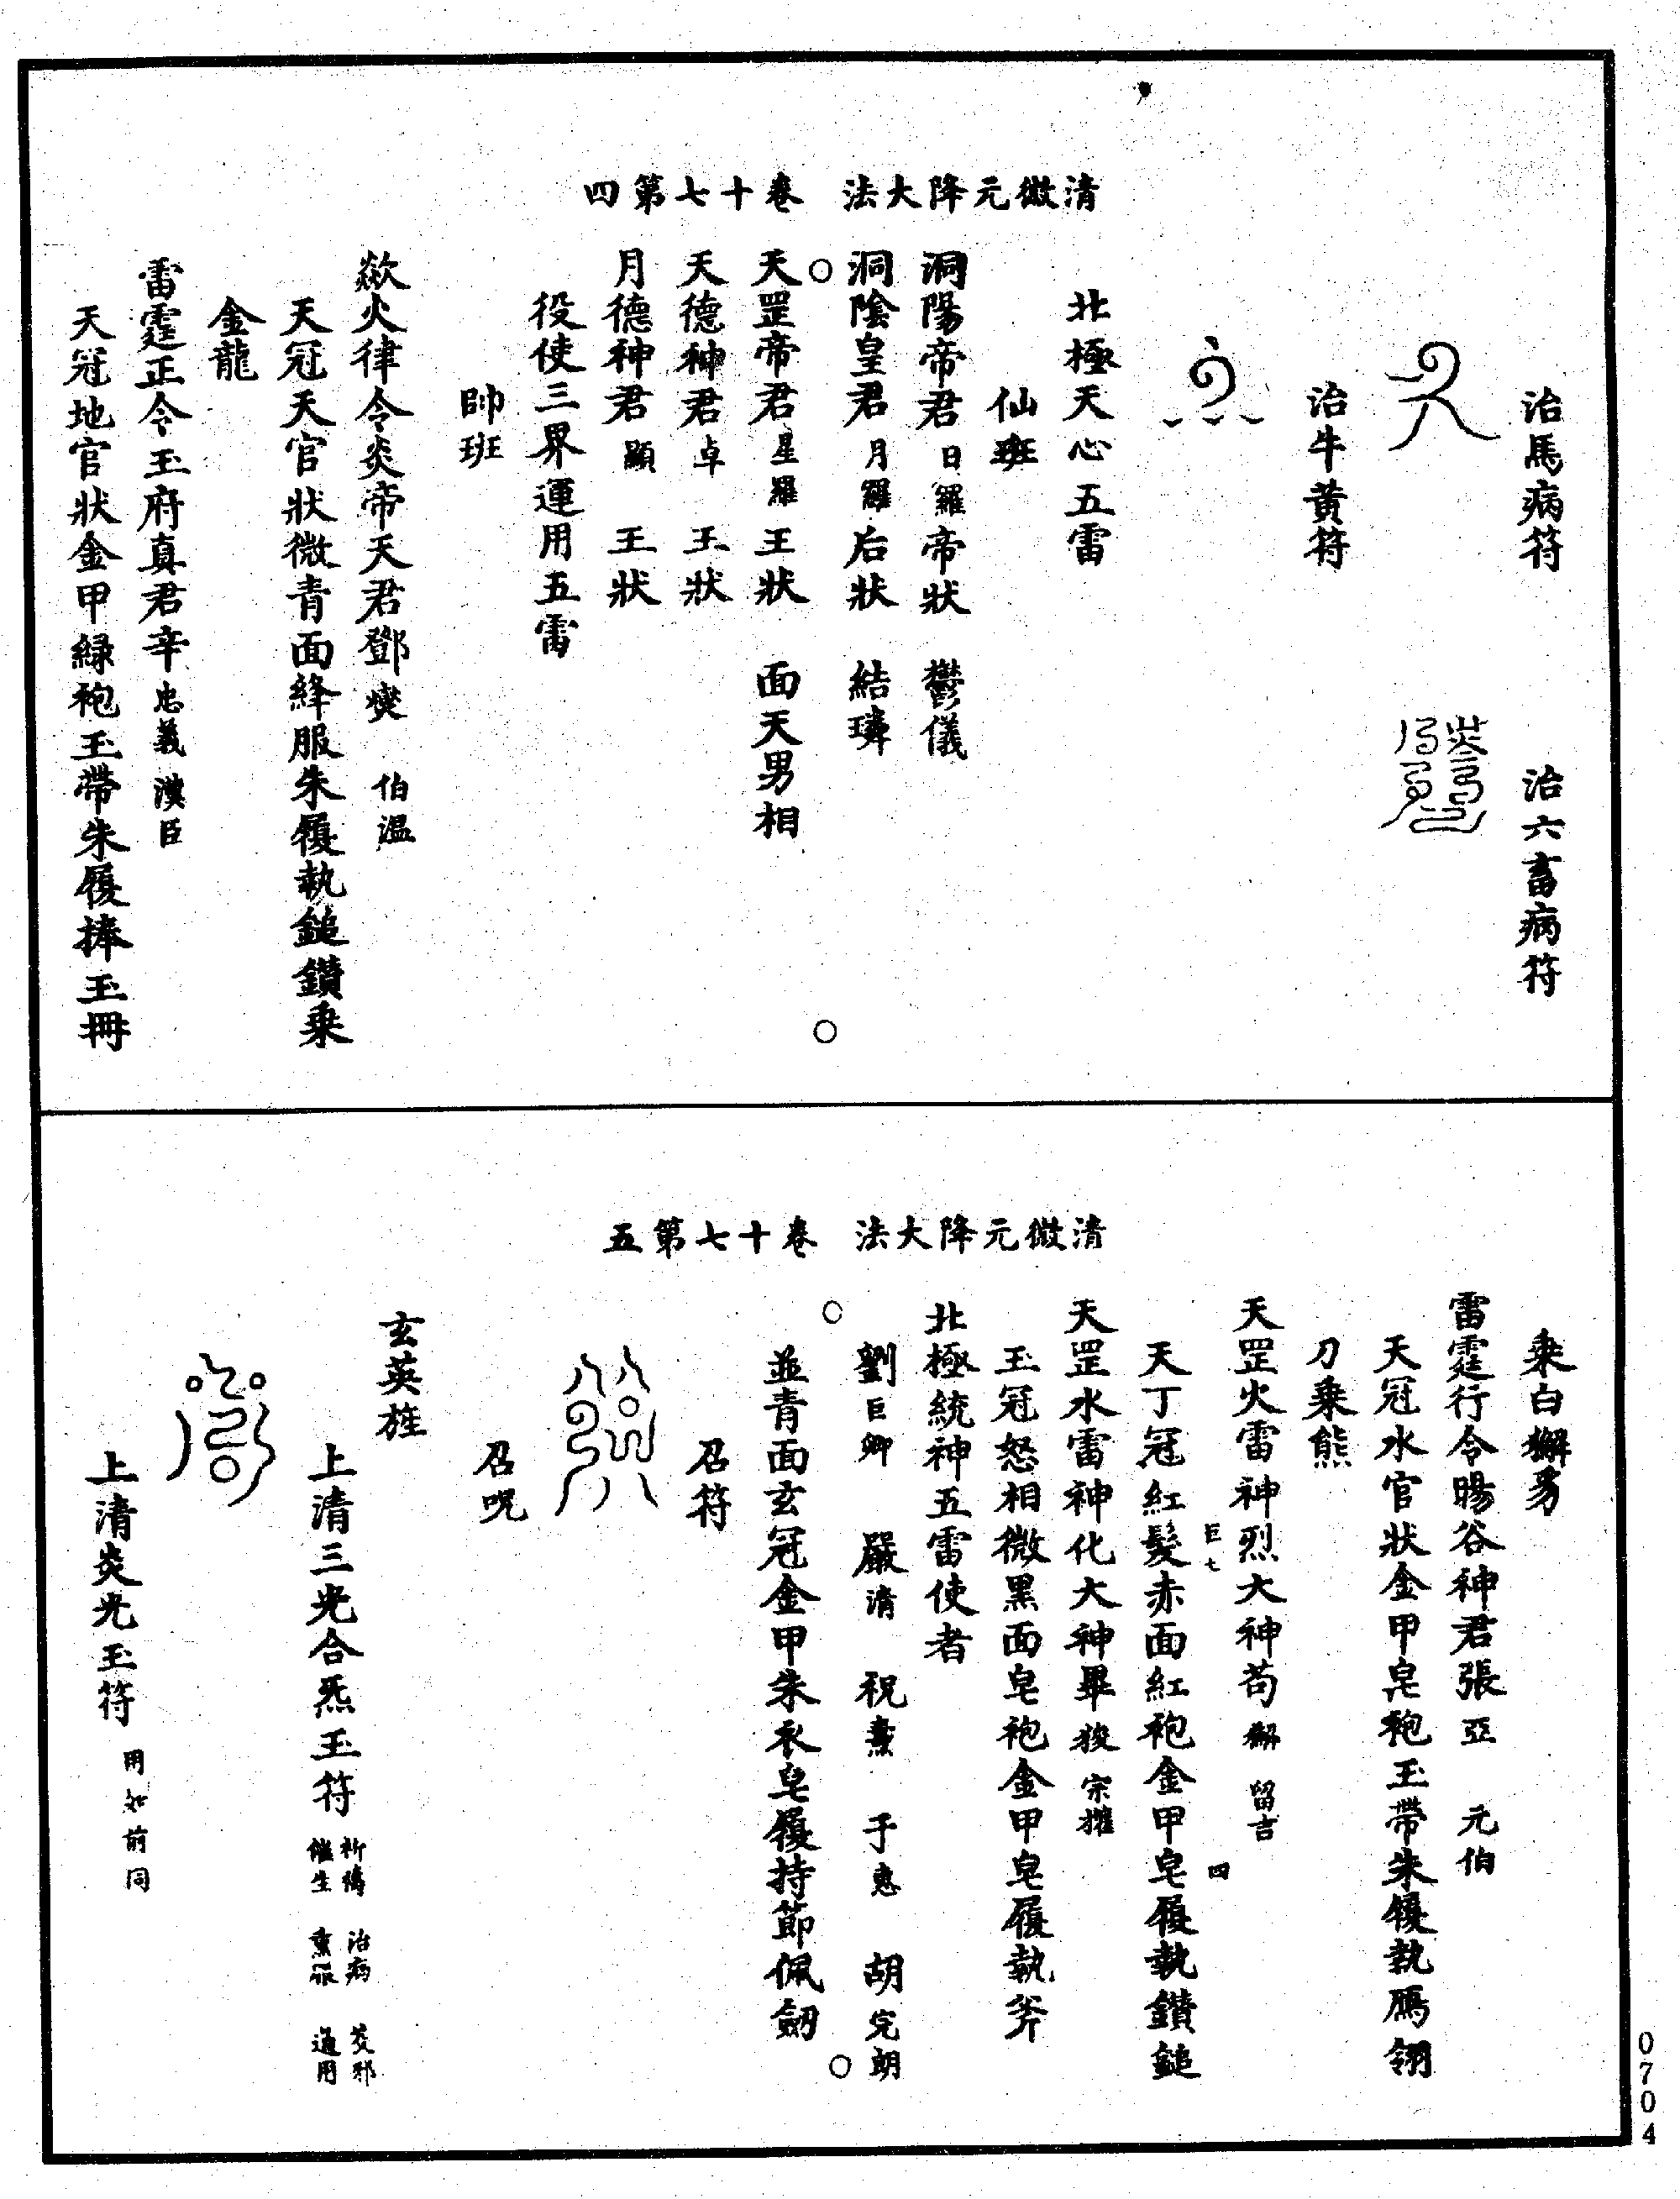 清微元降大法　卷十七第四
治馬病符　治六畜病符
治牛黃符
北極天心五雷
仙班
洞陽帝君日羅帝狀　鬱儀
洞陰皇君月羅后狀　結璘
天罡帝君星羅王狀　面天男相
天德神君卓　王狀
月德神君顯　王狀
役使三界運用五雷
帥班
歘火律令炎帝天君鄧燮　伯溫
天冠天官狀微青面絳服朱履執鎚鑽乗
金龍
雷霆正令玉府真君辛忠義　漢臣
天冠地官狀金甲緑袍玉帶朱履捧玉冊
清微元降大法　卷十七第五
乗白獬豸
雷霆行令暘谷神君張亞　元伯
天冠水官狀金甲皂袍玉帶朱履執鴈翎
刀乗熊
天罡火雷神烈大神苟獬　留吉
巨七　四
天丁冠紅髮赤面紅袍金甲皂履執鑽鎚
天罡水雷神化大神畢狻　宗攉
玉冠怒相微黑面皂袍金甲皂履執斧
北極統神五雷使者
劉巨卿　嚴清　祝熏　于惠　胡完朗
並青面玄冠金甲朱衣皂履持節佩劒
召符
召呪
玄英旌
上清三光合炁玉符祈禱　治病　芟邪
催生　熏眼　通用
上清炎光玉符用如前同
0704